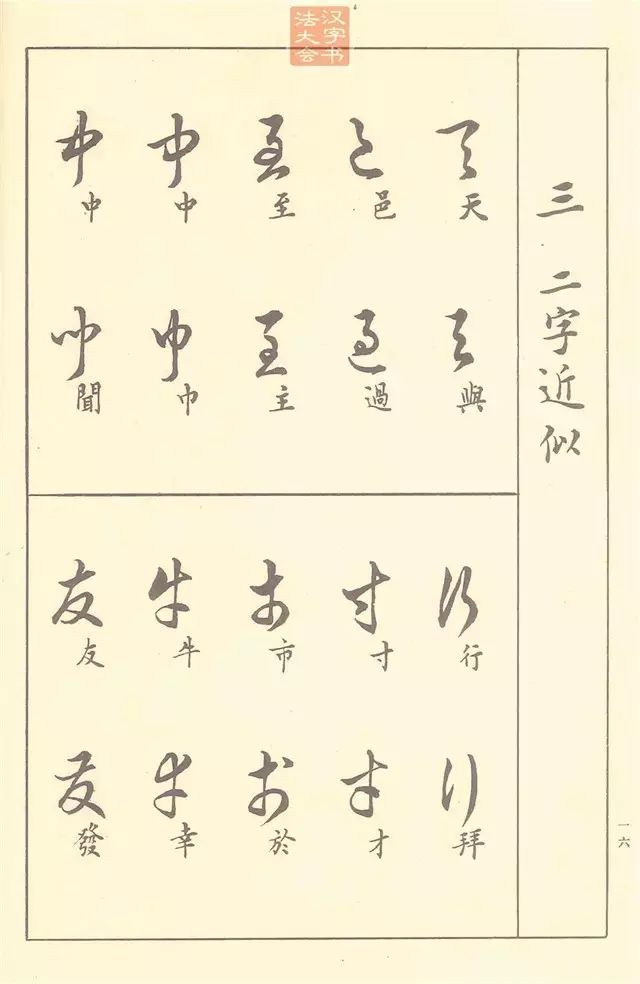 汉字书
法大会
三 二字近似
天 與
邑 過
至 主
中 巾
中 聞
行 拜
寸 才
市 於
牛 幸
友 發
一六